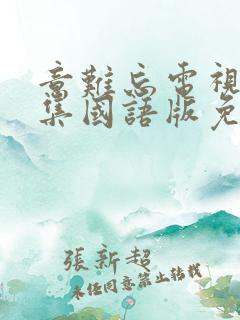 意難忘電視
集國語版免
張新超
未经同意禁止转载